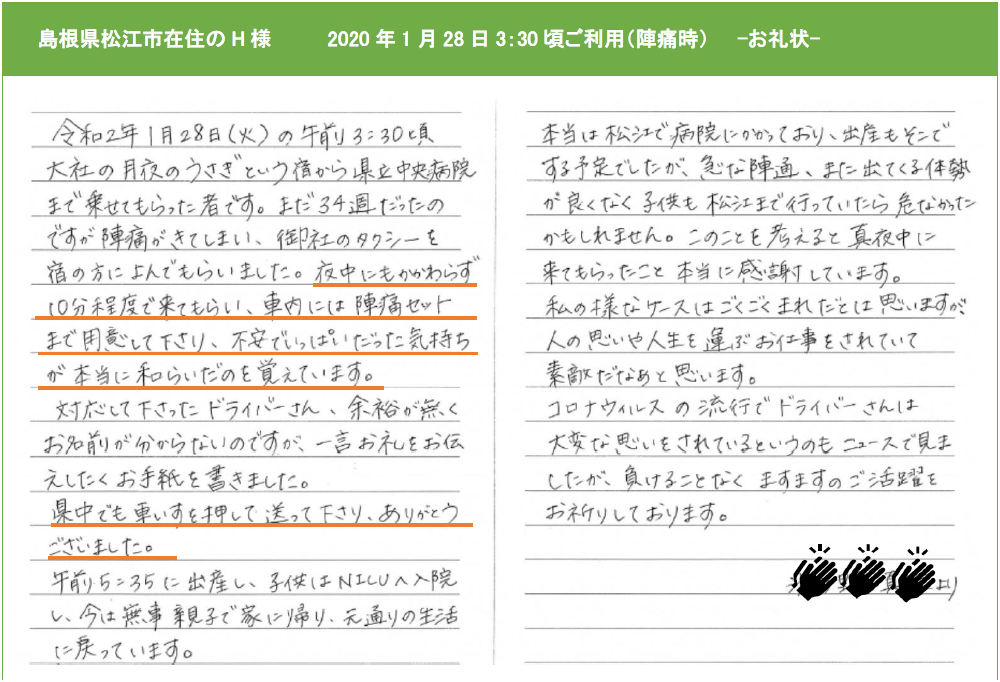 島根県松江市在住のH様　2020年1月28日3:30頃ご利用（陣痛時）　-お礼状-
令和2年1月28日(火)の午前3:30頃
大社の月夜のうさぎという宿から県立中央病院
まで乗せてもらった者です。まだ34週だったの
ですが陣痛がきてしまい、御社のタクシーを
宿の方によんでもらいました。夜中にもかかわらず
10分程度で来てもらい、車内には陣痛セット
まで用意して下さり、不安でいっぱいだった気持ち
が本当に和らいだのを覚えています。
対応して下さったドライバーさん、余裕が無く
お名前が分からないのですが、一言お礼をお伝
えしたくお手紙を書きました。
県中でも車いすを押して送って下さり、ありがとう
ございました。
午前5:35に出産し、子供はNICUへ入院
し、今は無事親子で家に帰り、元通りの生活
に戻っています。
本当は松江で病院にかかっており、出産もそこで
する予定でしたが、急な陣通、また出てくる体勢
が良くなく子供も松江まで行っていたら危なかった
かもしれません。このことを考えると真夜中に
来てもらったこと本当に感謝しています。
私の様なケースはごくごくまれだとは思いますが、
人の思いや人生を運ぶお仕事をされていて
素敵だなあと思います。
コロナウィルスの流行でドライバーさんは
大変な思いをされているというのもニュースで見ま
したが、負けることなくますますのご活躍を
お祈りしております。
より